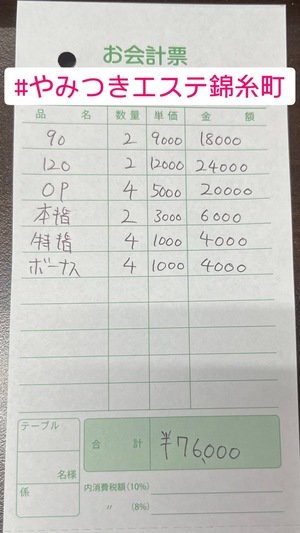 お会計票
#やみつきエステ錦糸町
品 名 数量 単価 金 額
90 2 9000 18000
120 2 12000 24000
OP 4 5000 20000
本指 2 3000 6000
特指 4 1000 4000
ボーナス 4 1000 4000
テーブル
合 計 ¥76,000
名様
係
内消費税額(10%)
〃 (8%)